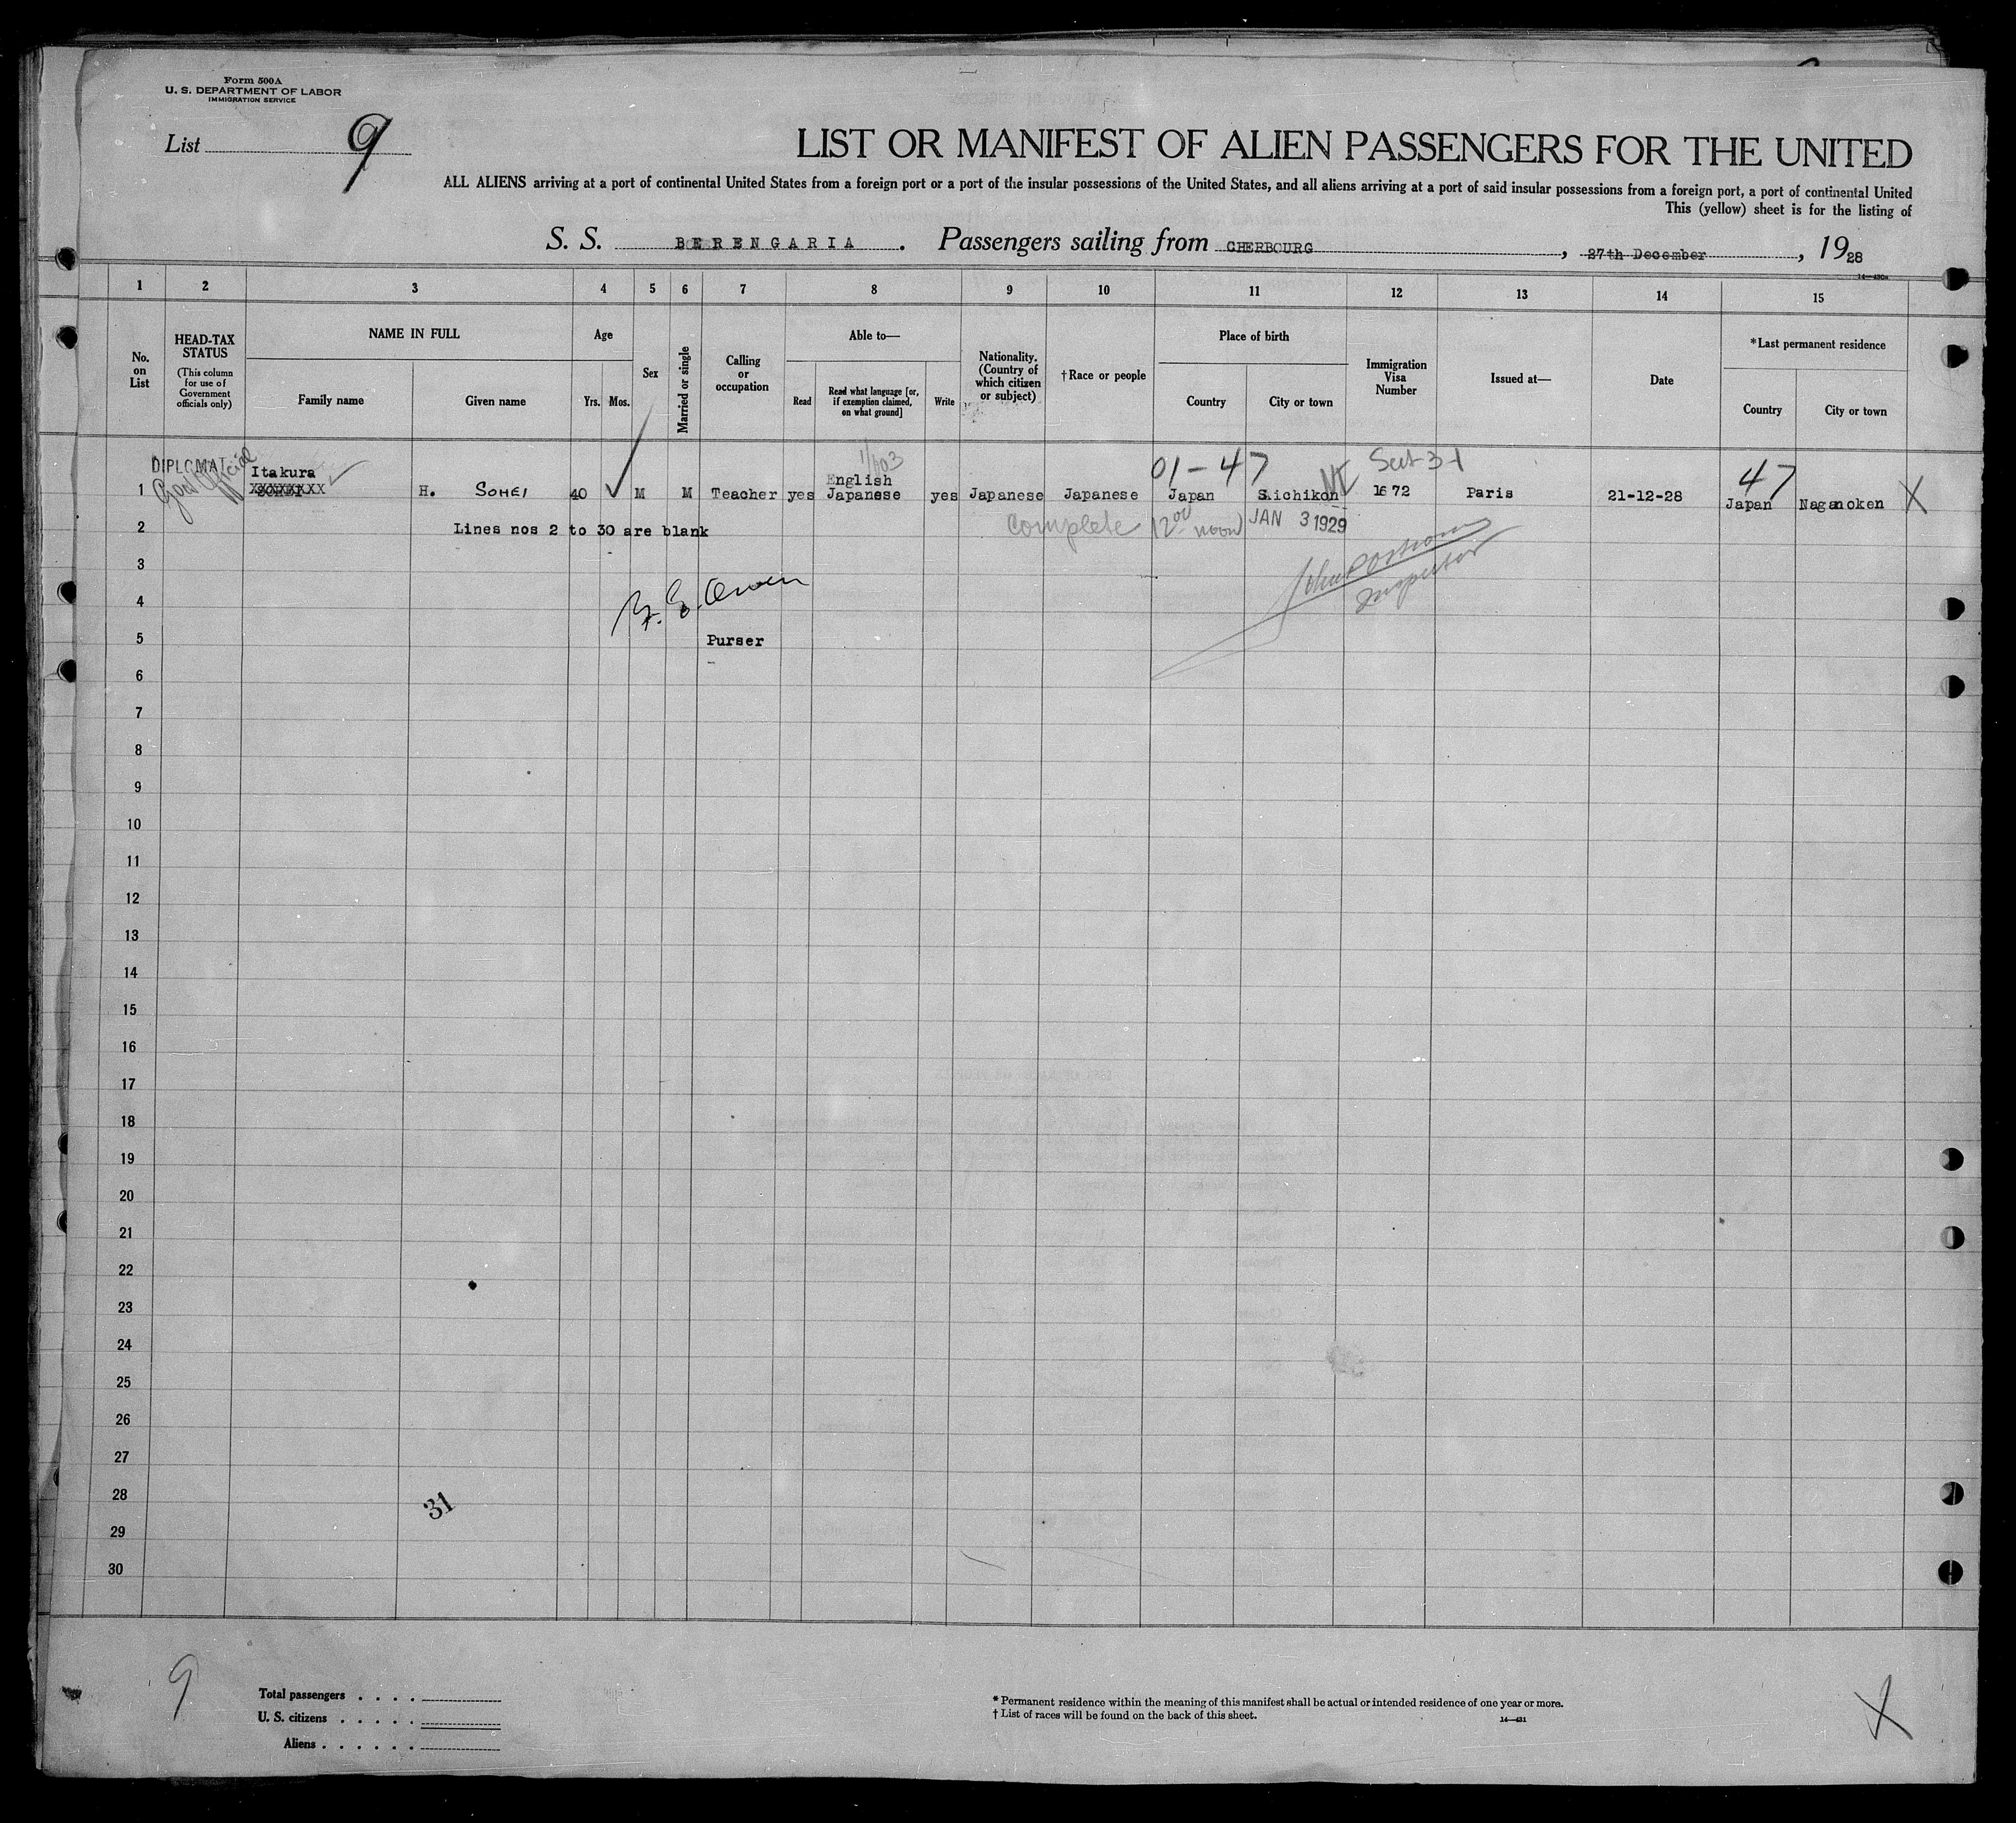 Form 500A
U. S. DEPARTMENT OF LABOR
IMMIGRATION SERVICE
List 9
LIST OR MANIFEST OF ALIEN PASSENGERS FOR THE UNITED
ALL ALIENS arriving at a port of continental United States from a foreign port or a port of the insular possessions of the United States, and all aliens arriving at a port of said insular possessions from a foreign port, a port of continental United
This (yellow) sheet is for the listing of
S. S. BERENGARIA. Passengers sailing from CHERBOURG, 27th December, 1928
14—430a
1 2 3 4 5 6 7 8 9 10 11 12 13 14 15
No. on List
HEAD-TAX STATUS
(This column for use of Government officials only)
NAME IN FULL
Family name
Given name
Age
Yrs. Mos.
Sex
Married or single
Calling or occupation
Able to—
Read
Read what language [or, if exemption claimed, on what ground]
Write
Nationality. (Country of which citizen or subject)
†Race or people
Place of birth
Country
City or town
Immigration Visa Number
Issued at—
Date
*Last permanent residence
Country
City or town
DIPLOMAT
Govt Official
Itakura
1/103
English
01-47
47
1 XXXXXXXX H. SOHEI 40 M M Teacher yes Japanese yes Japanese Japanese Japan Sichikon 1672 Paris 21-12-28 Japan Naganoken X
2 Lines nos 2 to 30 are blank complete 12 00 noon JAN 3 1929
Inspector
3
4
Owen
5 Purser
6
7
8
9
10
11
12
13
14
15
16
17
18
19
20
21
22
23
24
25
26
27
28
31
29
30
9
Total passengers . . . .
U. S. citizens . . . . .
Aliens . . . . . .
* Permanent residence within the meaning of this manifest shall be actual or intended residence of one year or more.
† List of races will be found on the back of this sheet.
14—431
X